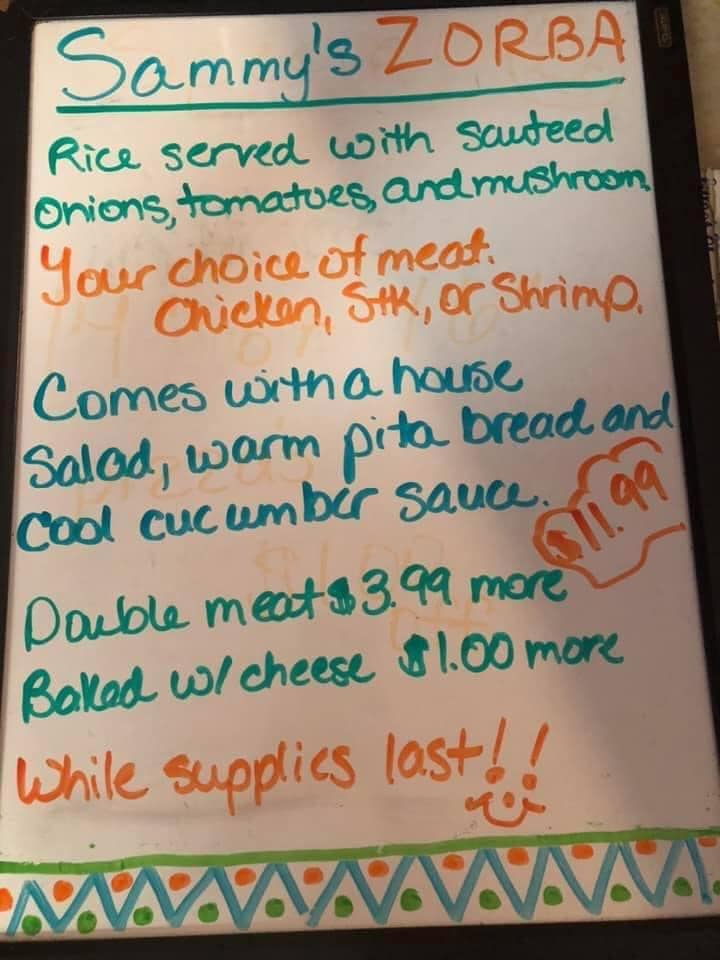 Sammy's ZORBA
Rice served with sauteed
onions, tomatoes, and mushroom
Your choice of meat.
Chicken, Stk, or Shrimp.
Comes with a house
Salad, warm pita bread and
Cool cucumber sauce.
$11.99
Double meat $3.99 more
Baked w/ cheese $1.00 more
While supplies last!!